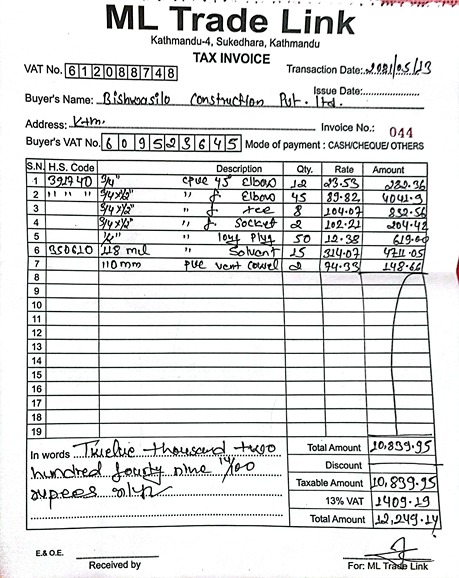 ML Trade Link
Kathmandu-4, Sukedhara, Kathmandu
TAX INVOICE
VAT No. 612088748 Transaction Date: 2081/05/13
Issue Date:
Buyer's Name: Bishwasilo Construction Pvt. ltd.
Address: Ktm. Invoice No.: 044
Buyer's VAT No. 609523645 Mode of payment : CASH/CHEQUE/ OTHERS
S.N. H.S. Code Description Qty. Rate Amount
1 391740 3/4" CPVC 45° Elbow 12 23.53 282.36
2 " " " 3/4x1/2" " f. Elbow 45 89.82 4041.9
3 3/4x1/2" " f. tee 8 104.07 832.56
4 3/4x1/2" " f. Socket 2 102.21 204.42
5 1/2" " long Plug 50 12.38 619.00
6 350610 118 mil " Solvent 15 314.07 4711.05
7 110mm PVC vent cowel 2 74.33 148.66
8
9
10
11
12
13
14
15
16
17
18
19
In words Twelve thousand two
hundred fourty nine 14/100
rupees only
Total Amount 10,839.95
Discount
Taxable Amount 10,839.95
13% VAT 1409.19
Total Amount 12,249.14
E.& O.E.
Received by For: ML Trade Link